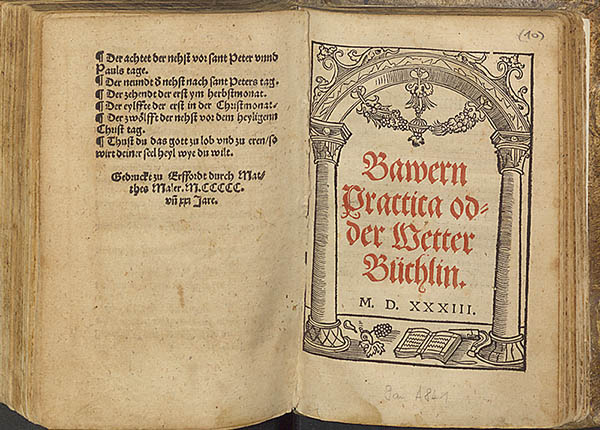 ¶ Der achtet der nehst vor sant Peter vnnd
Pauls tage.
¶ Der neundt d nehst nach sant Peters tag.
¶ Der zehendt der erst ym herbstmonat.
¶ Der eylffte der erst in der Christmonat.
¶ Der zwölfft der nehst vor dem heyligenn
Christ tag.
¶ Thust du das gott zu lob vnd zu eren/so
wirt deiner seel heyl wye du wilt.
Gedruckt zu Erffordt durch Mat-
thes Maler. M.CCCCC.
vñ xxi Jare.
(10)
Bawern
Practica od-
der Wetter
Büchlin.
M. D. XXXIII.